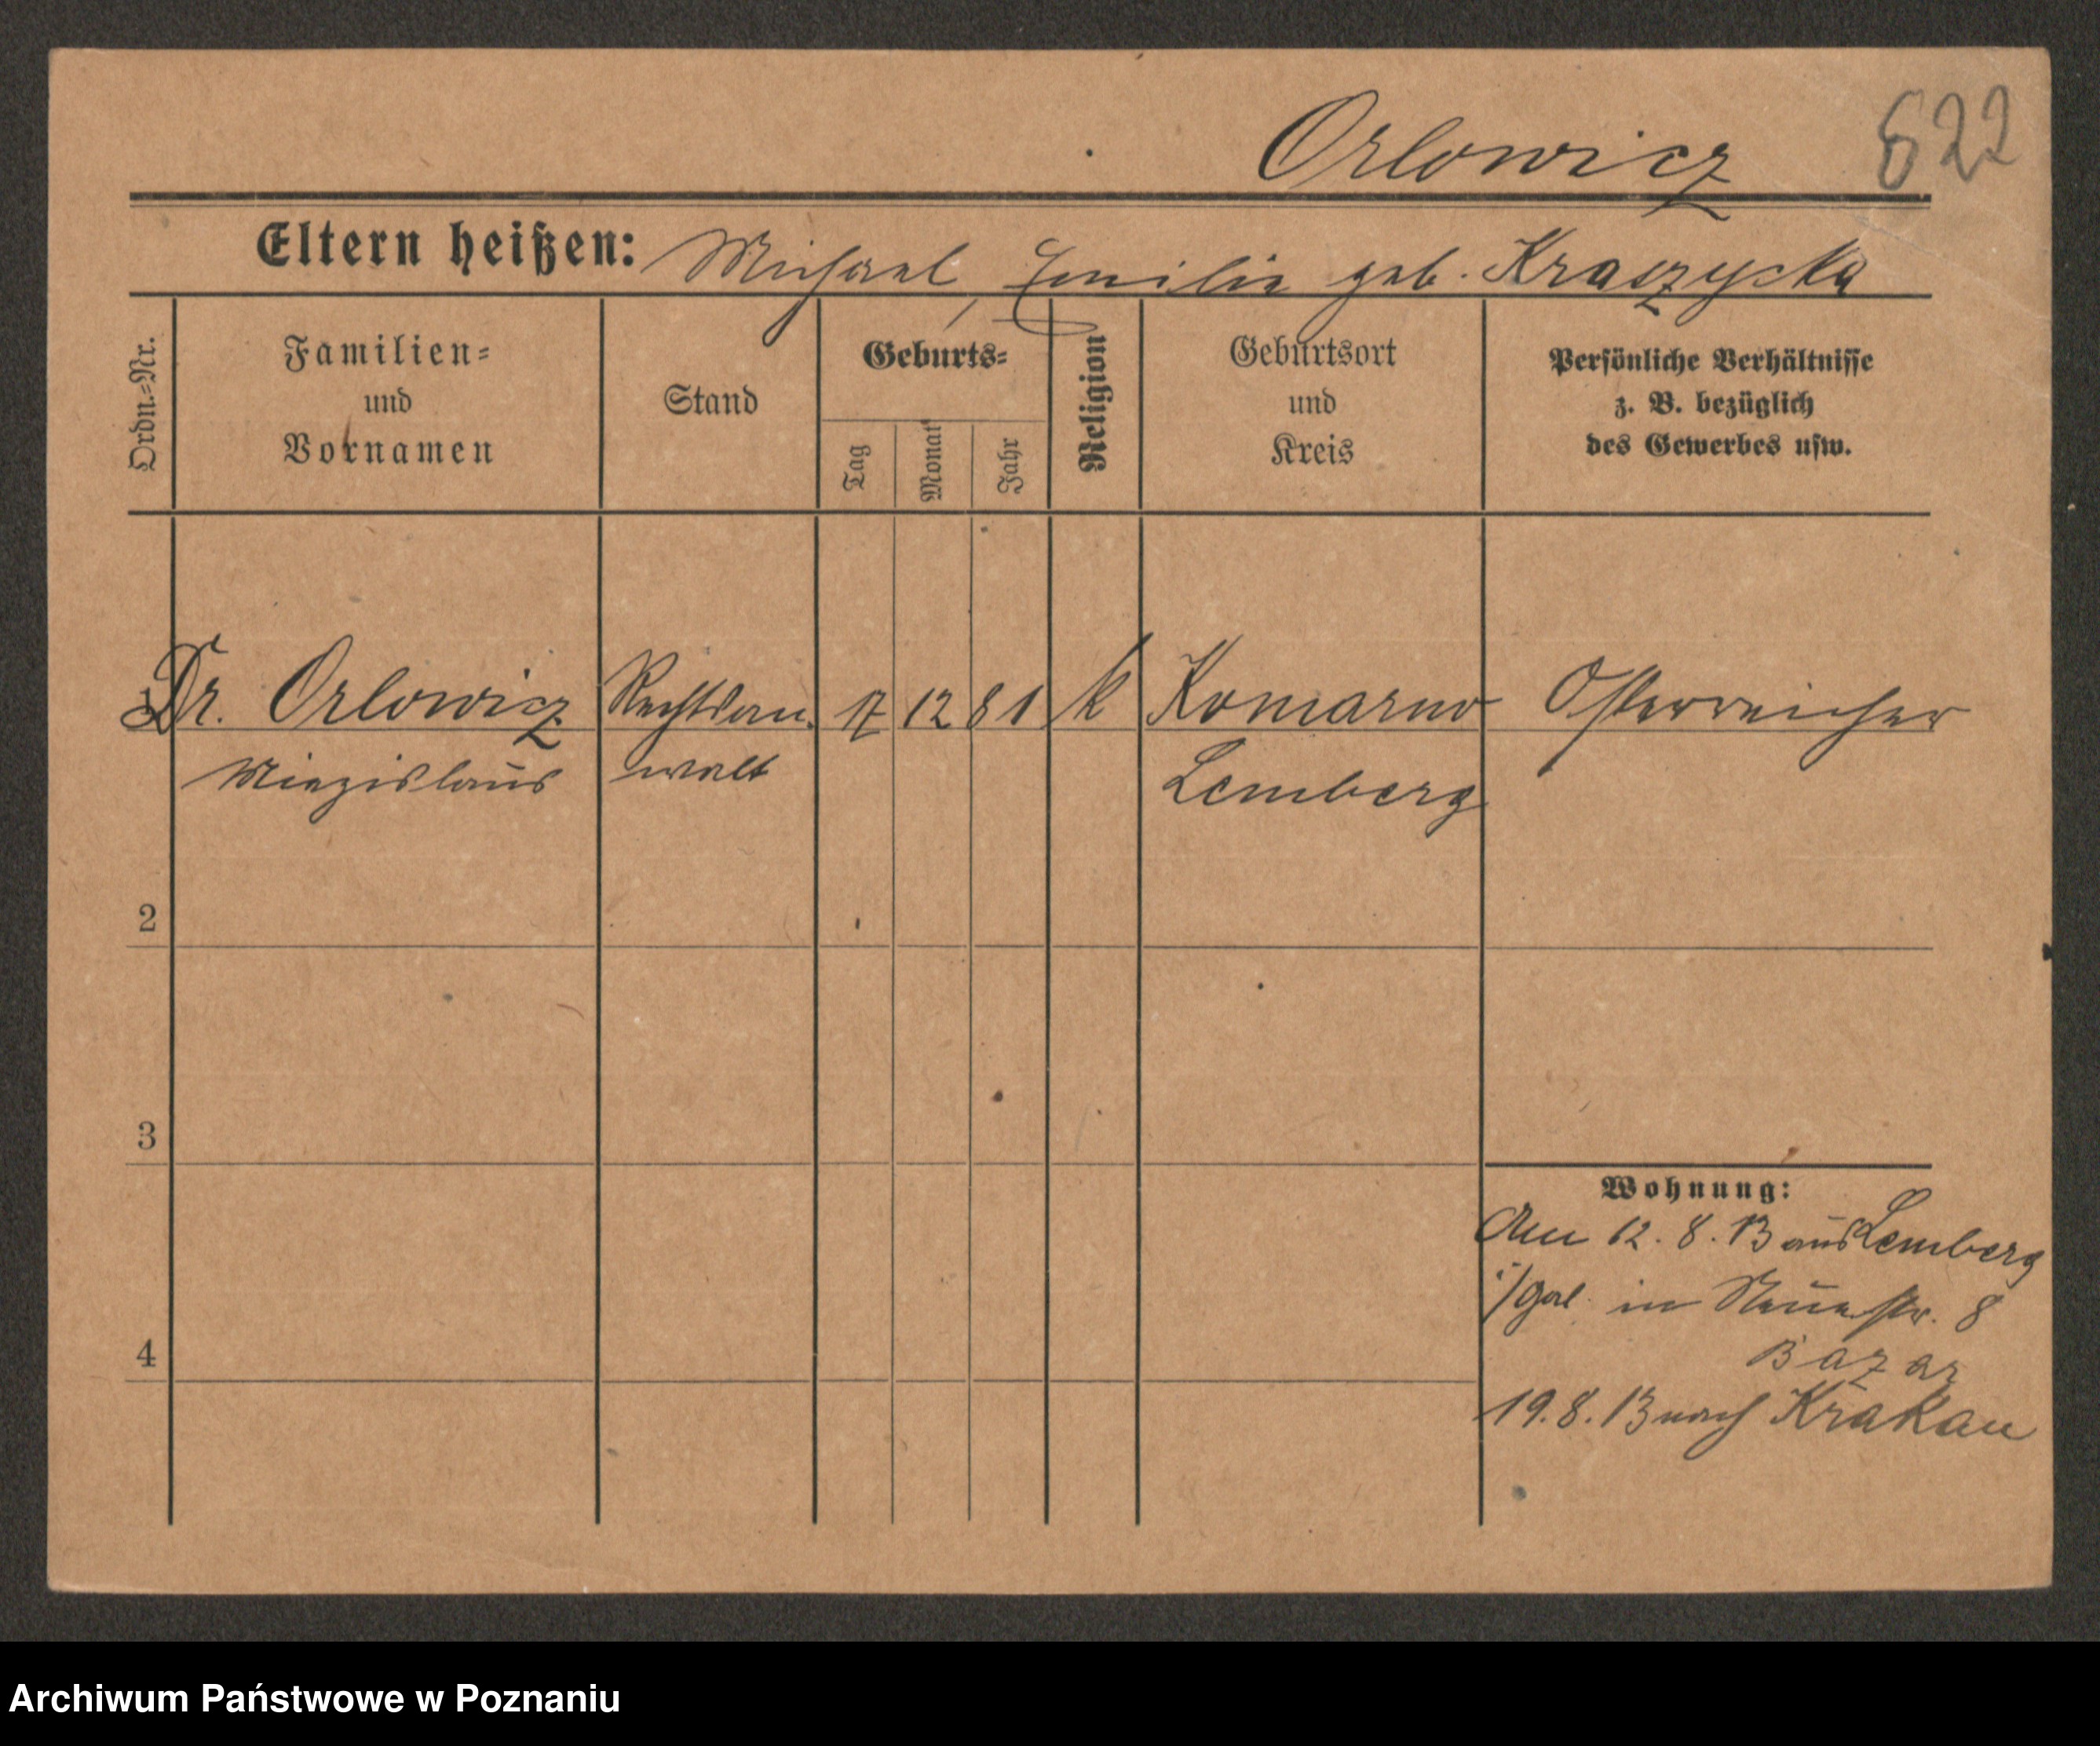 Orlowicz 622
Eltern heißen: Michael, Emilie geb. Kraczycka
Ordn.=Nr.
Familien=
und
Vornamen
Stand
Geburts=
Tag
Monat
Jahr
Religion
Geburtsort
und
Kreis
Persönliche Verhältnisse
z. B. bezüglich
des Gewerbes usw.
Dr. Orlowicz Rechtsan- 17 12 81 k Komarno Österreicher
Miezislaus walt Lemberg
2
3
4
Wohnung:
Am 12. 8. 13 aus Lemberg
i/Gal. in Neuestr. 8
Bazar
19. 8. 13 nach Krakau
Archiwum Państwowe w Poznaniu